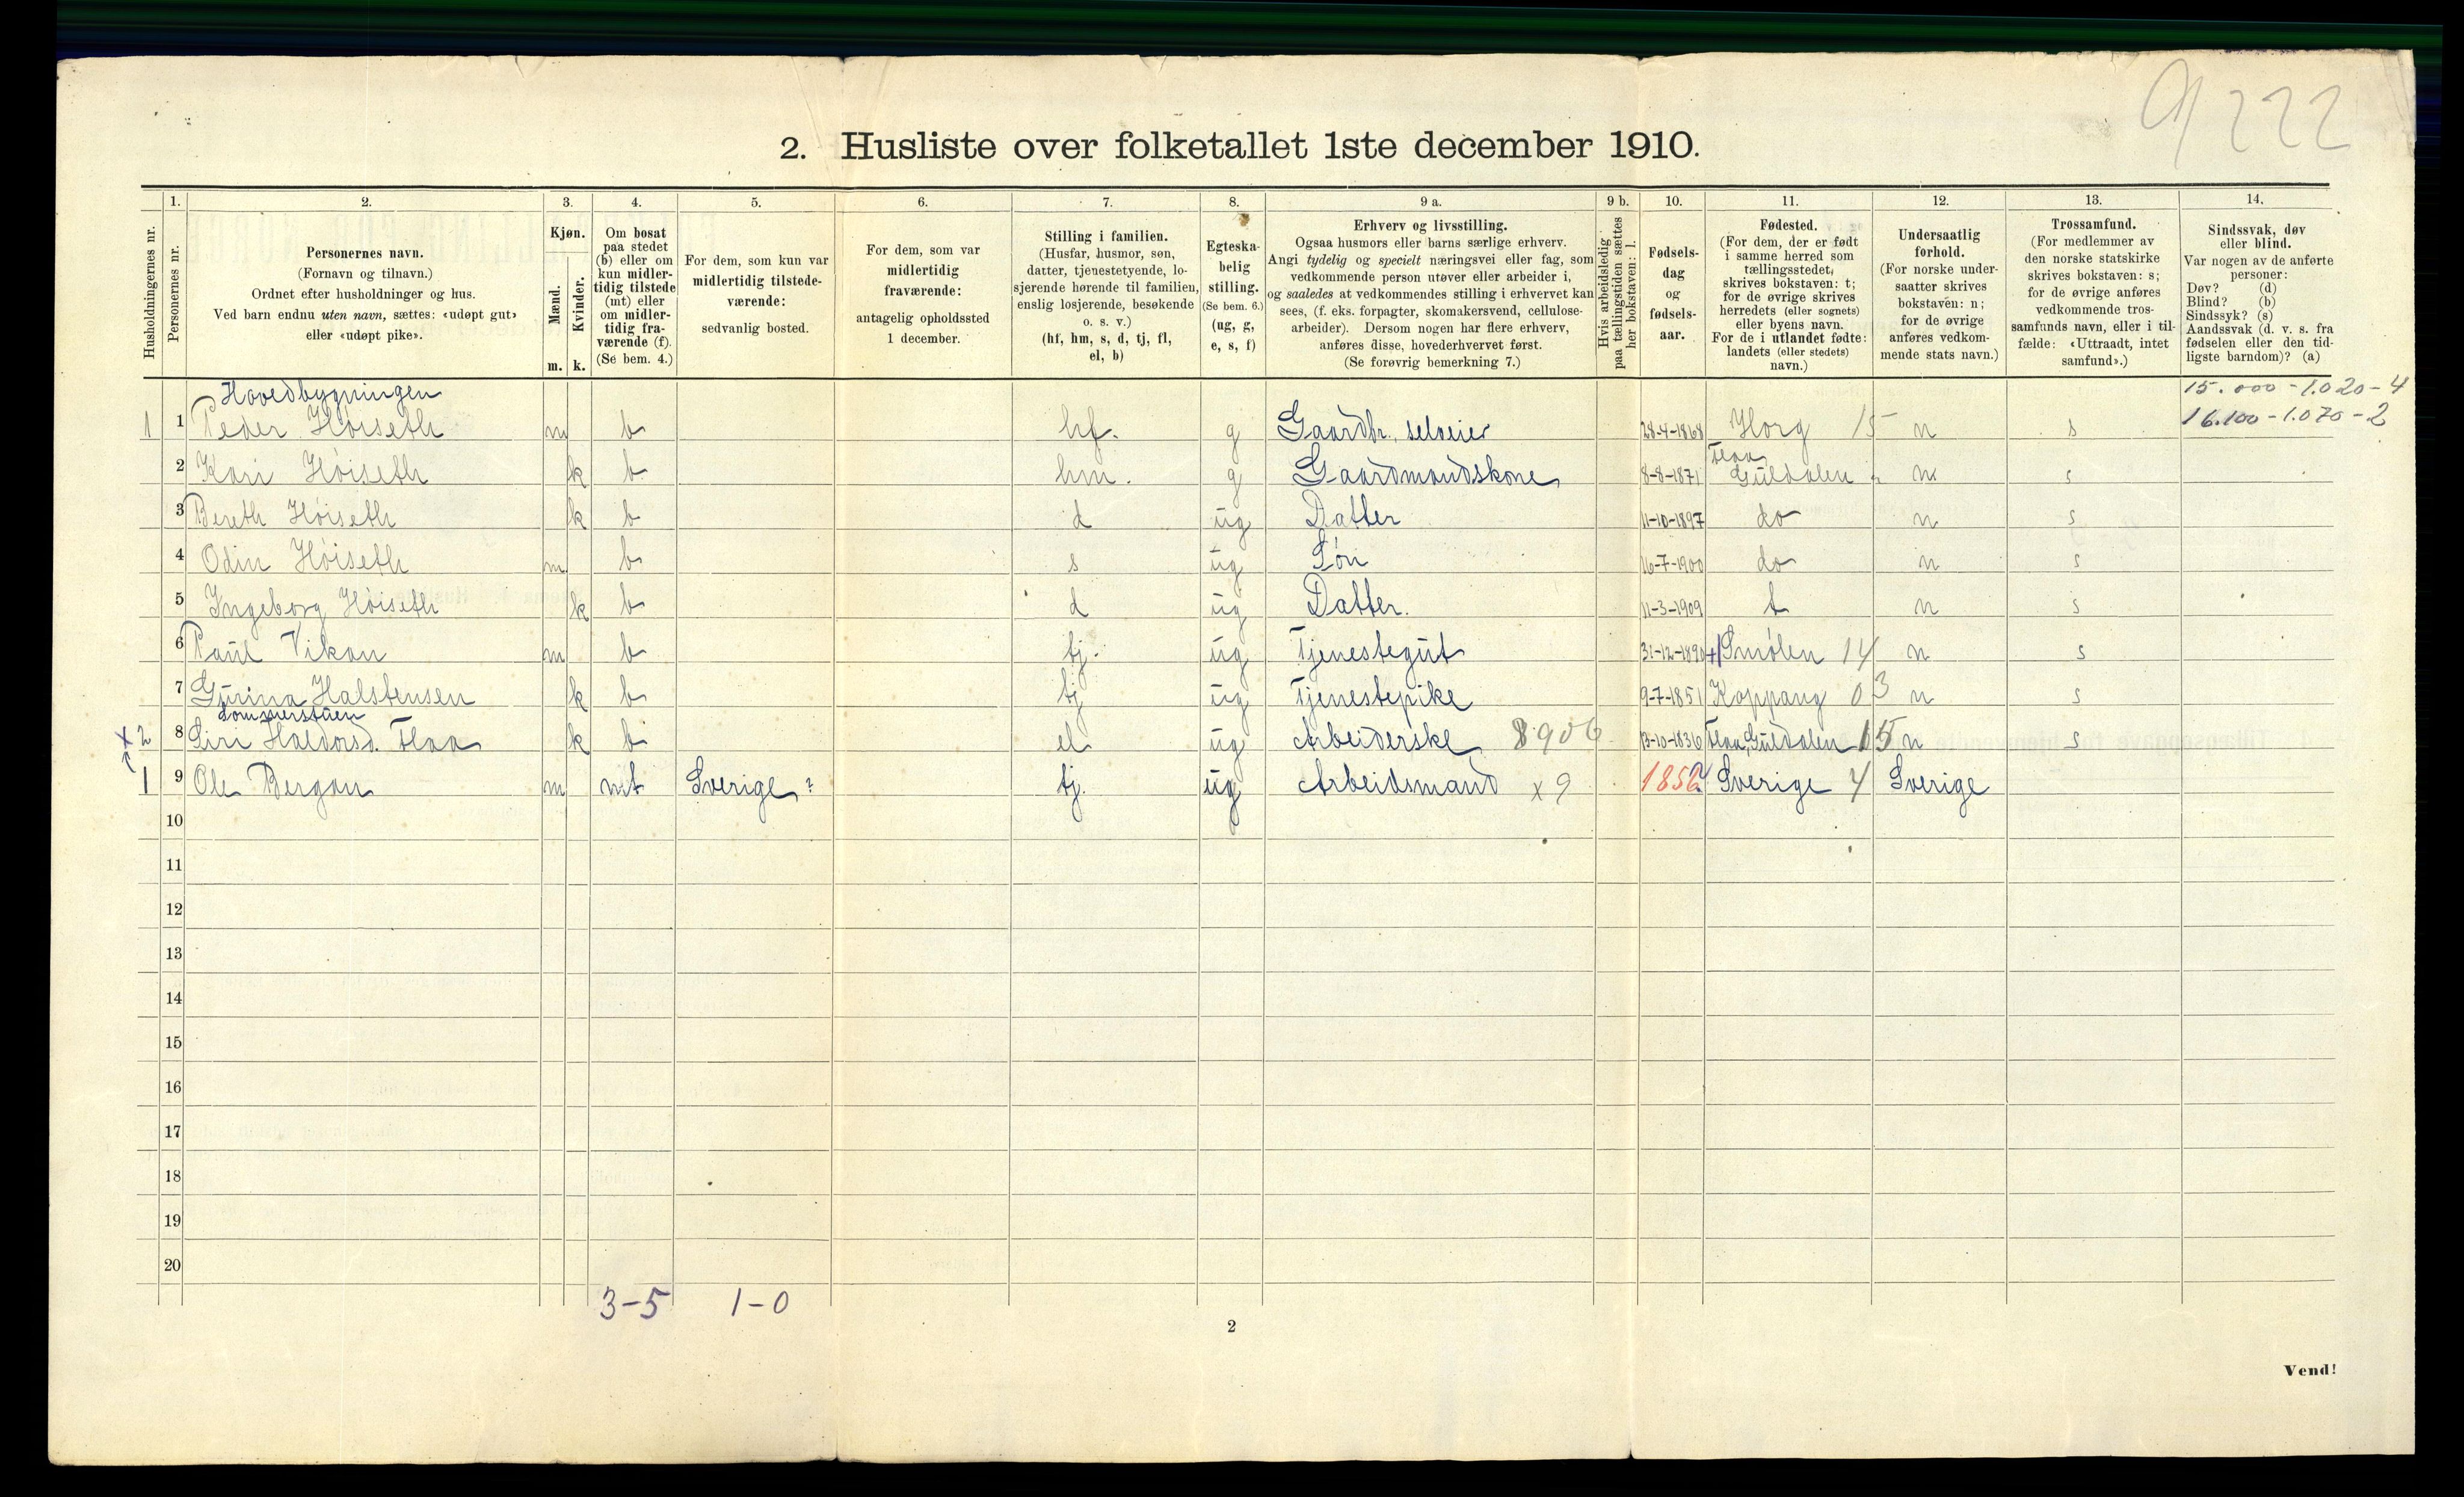 9/222
2. Husliste over folketallet 1ste december 1910.
Husholdningernes nr.
1.
Personernes nr.
2.
Personernes navn.
(Fornavn og tilnavn.)
Ordnet efter husholdninger og hus.
Ved barn endnu uten navn, sættes: «udøpt gut»
eller «udøpt pike».
3.
Kjøn.
Mænd.
Kvinder.
m. k.
4.
Om bosat
paa stedet
(b) eller om
kun midler-
tidig tilstede
(mt) eller
om midler-
tidig fra-
værende (f).
(Se bem. 4.)
5.
For dem, som kun var
midlertidig tilstede-
værende:
sedvanlig bosted.
6.
For dem, som var
midlertidig
fraværende:
antagelig opholdssted
1 december.
7.
Stilling i familien.
(Husfar, husmor, søn,
datter, tjenestetyende, lo-
sjerende hørende til familien,
enslig losjerende, besøkende
o. s. v.)
(hf, hm, s, d, tj, fl,
el, b)
8.
Egteska-
belig
stilling.
(Se bem. 6.)
(ug, g,
e, s, f)
9 a.
Erhverv og livsstilling.
Ogsaa husmors eller barns særlige erhverv.
Angi tydelig og specielt næringsvei eller fag, som
vedkommende person utøver eller arbeider i,
og saaledes at vedkommendes stilling i erhvervet kan
sees, (f. eks. forpagter, skomakersvend, cellulose-
arbeider). Dersom nogen har flere erhverv,
anføres disse, hovederhvervet først.
(Se forøvrig bemerkning 7.)
9 b.
Hvis arbeidsledig
paa tællingstiden sættes
her bokstaven: l.
10.
Fødsels-
dag
og
fødsels-
aar.
11.
Fødested.
(For dem, der er født
i samme herred som
tællingsstedet,
skrives bokstaven: t;
for de øvrige skrives
herredets (eller sognets)
eller byens navn.
For de i utlandet fødte:
landets (eller stedets)
navn.)
12.
Undersaatlig
forhold.
(For norske under-
saatter skrives
bokstaven: n;
for de øvrige
anføres vedkom-
mende stats navn.)
13.
Trossamfund.
(For medlemmer av
den norske statskirke
skrives bokstaven: s;
for de øvrige anføres
vedkommende tros-
samfunds navn, eller i til-
fælde: «Uttraadt, intet
samfund».)
14.
Sindssvak, døv
eller blind.
Var nogen av de anførte
personer:
Døv? (d)
Blind? (b)
Sindssyk? (s)
Aandssvak (d. v. s. fra
fødselen eller den tid-
ligste barndom)? (a)
15.000 - 1.020 - 4
Hovedbygningen
1 1 Peder Høiseth m b hf. g Gaardbr. selveier 28-4-1868 Horg 15 n s 16.100 - 1.070 - 2
2 Kari Høiseth k b hm. g Gaardmandskone 8-8-1871 Flaa Guldalen n s
3 Bereth Høiseth k b d ug Datter 11-10-1897 do n s
4 Odin Høiseth m b s ug Søn 16-7-1900 do n s
5 Ingeborg Høiseth k b d ug Datter. 11-3-1909 t n s
6 Paul Vikan m b tj. ug Tjenestegut 31-12-1890 + Smølen 14 n s
7 Gurina Halstensen k b tj ug Tjenestepike 9-7-1851 Koppang 03 n s
Sommerstuen
x 2 8 Siri Haldorsd. Flaa k b el ug Arbeiderske 8906 13-10-1836 Flaa, Guldalen 15 n s
1 9 Ole Bergan m mt Sverige ? tj. ug Arbeidsmand x 9 1852 Sverige 4 Sverige
10
11
12
13
14
15
16
17
18
19
20
3-5 1-0
2
Vend!